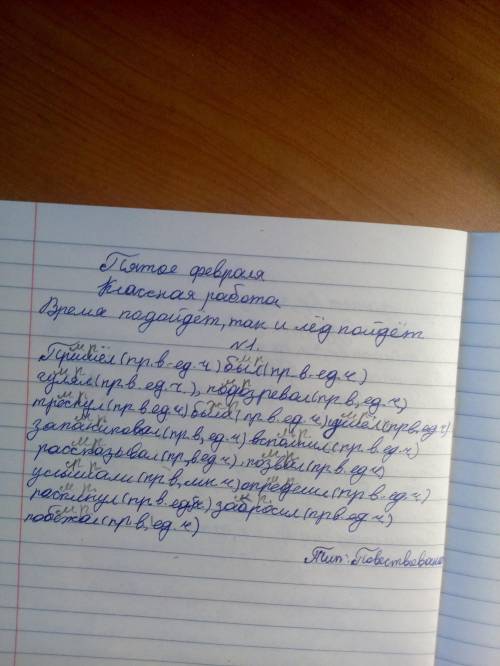 Пятое февраля
Классная работа
Время подойдёт, так и лёд пойдёт
№1.
м.р. м.р.
Пришёл (пр.в. ед.ч) был (пр.в. ед.ч)
м.р. м.р.
гулял (пр.в. ед.ч.), подозревал (пр.в, ед.ч)
м.р. м.р.
треснул (пр.в. ед.ч) была (пр.в. ед.ч) ушёл (пр.в, ед.ч)
м.р. м.р.
запаниковал (пр.в, ед.ч) вспомнил (пр.в. ед.ч)
м.р. м.р.
рассказывал (пр.в, ед.ч), позвал (пр.в. ед.ч)
услышали (пр.в, мн.ч) (пр.в. ед.ч)
м.р. м.р.
(пр.в. ед.ч) забросил (пр.в. ед.ч)
м.р.
побежал (пр.в, ед.ч)
Тип: Повествование